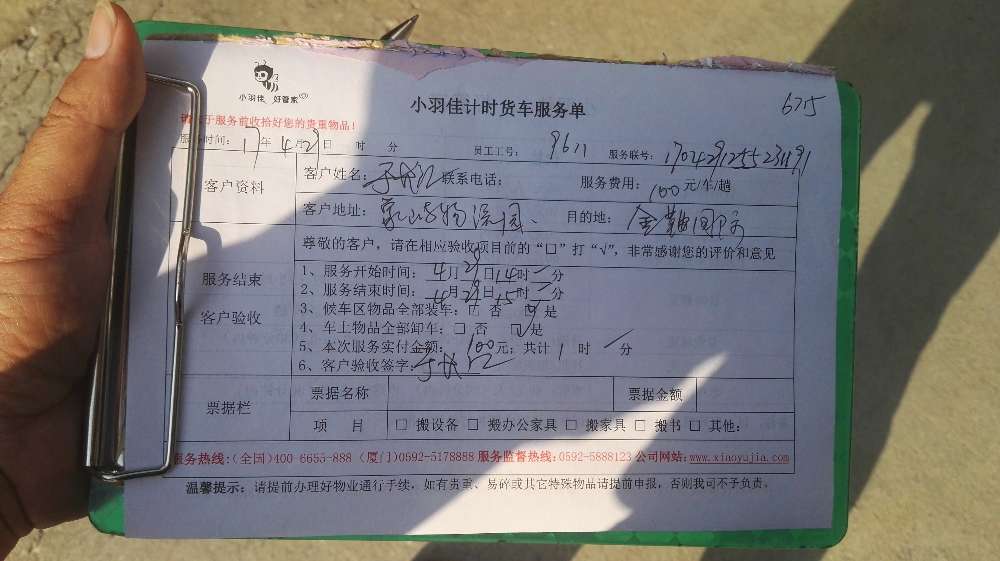 小羽佳 好管家
小羽佳计时货车服务单
6715
请于服务前收拾好您的贵重物品！
服务时间：17年4月29日 时 分 员工工号：9611 服务联号：
客户资料
客户姓名： 联系电话： 服务费用：100元/车/趟
客户地址： 目的地：
服务结束
客户验收
尊敬的客户，请在相应验收项目前的“口”打“√”，非常感谢您的评价和意见
1、服务开始时间：4月29日14时 分
2、服务结束时间：4月29日15时 分
3、候车区物品全部装车：□ 否 ☑ 是
4、车上物品全部卸车：□ 否 ☑ 是
5、本次服务实付金额：100元；共计1时 分
6、客户验收签字：
票据栏
票据名称 票据金额
项 目 □ 搬设备 □ 搬办公家具 □ 搬家具 □ 搬书 □ 其他：
服务热线：（全国）400-6655-888（厦门）0592-5178888 服务监督热线：0592-5888123 公司网站：www.xiaoyujia.com
温馨提示：请提前办理好物业通行手续，如有贵重、易碎或其它特殊物品请提前申报，否则我司不予负责。